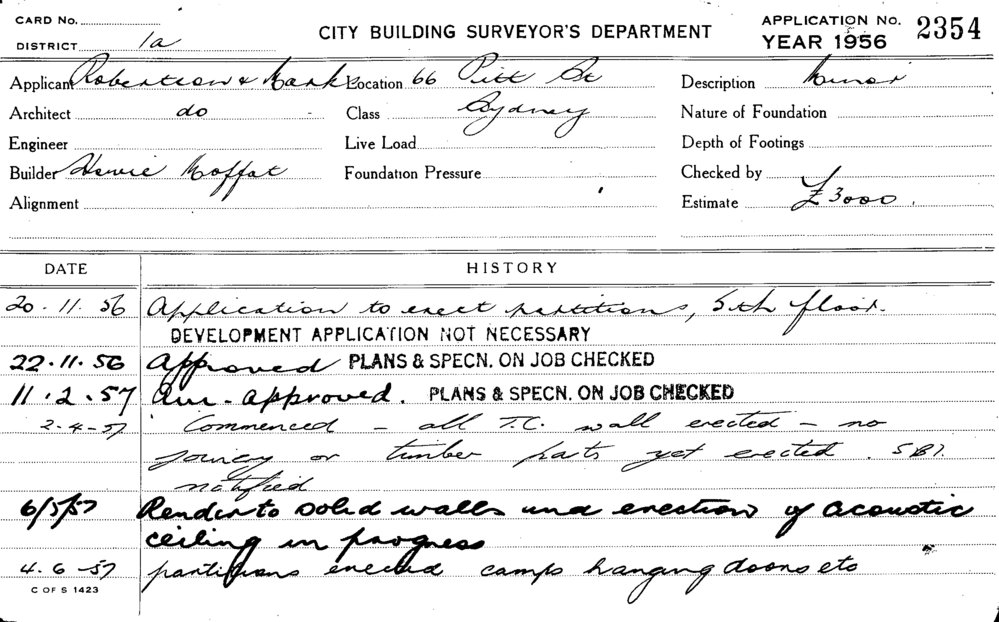 CARD No.
DISTRICT 1a
CITY BUILDING SURVEYOR'S DEPARTMENT
APPLICATION No. 2354
YEAR 1956
Applicant Robertson & Marks
Location 66 Pitt St
Description Minor
Architect do
Class Sydney
Nature of Foundation
Engineer
Live Load
Depth of Footings
Builder Howie Moffat
Foundation Pressure
Checked by
Alignment
Estimate £3000.
DATE HISTORY
20.11.56 Application to erect partitions, 5th floor.
DEVELOPMENT APPLICATION NOT NECESSARY
22.11.56 Approved PLANS & SPECN. ON JOB CHECKED
11.2.57 approved. PLANS & SPECN. ON JOB CHECKED
2-4-57 Commenced - all T.C. wall erected - no
joinery or timber parts yet erected.
notified
6/5/57 Render to solid walls and erection of acoustic
ceiling in progress
4.6-57 partitions erected hanging doors etc
C OF S 1423